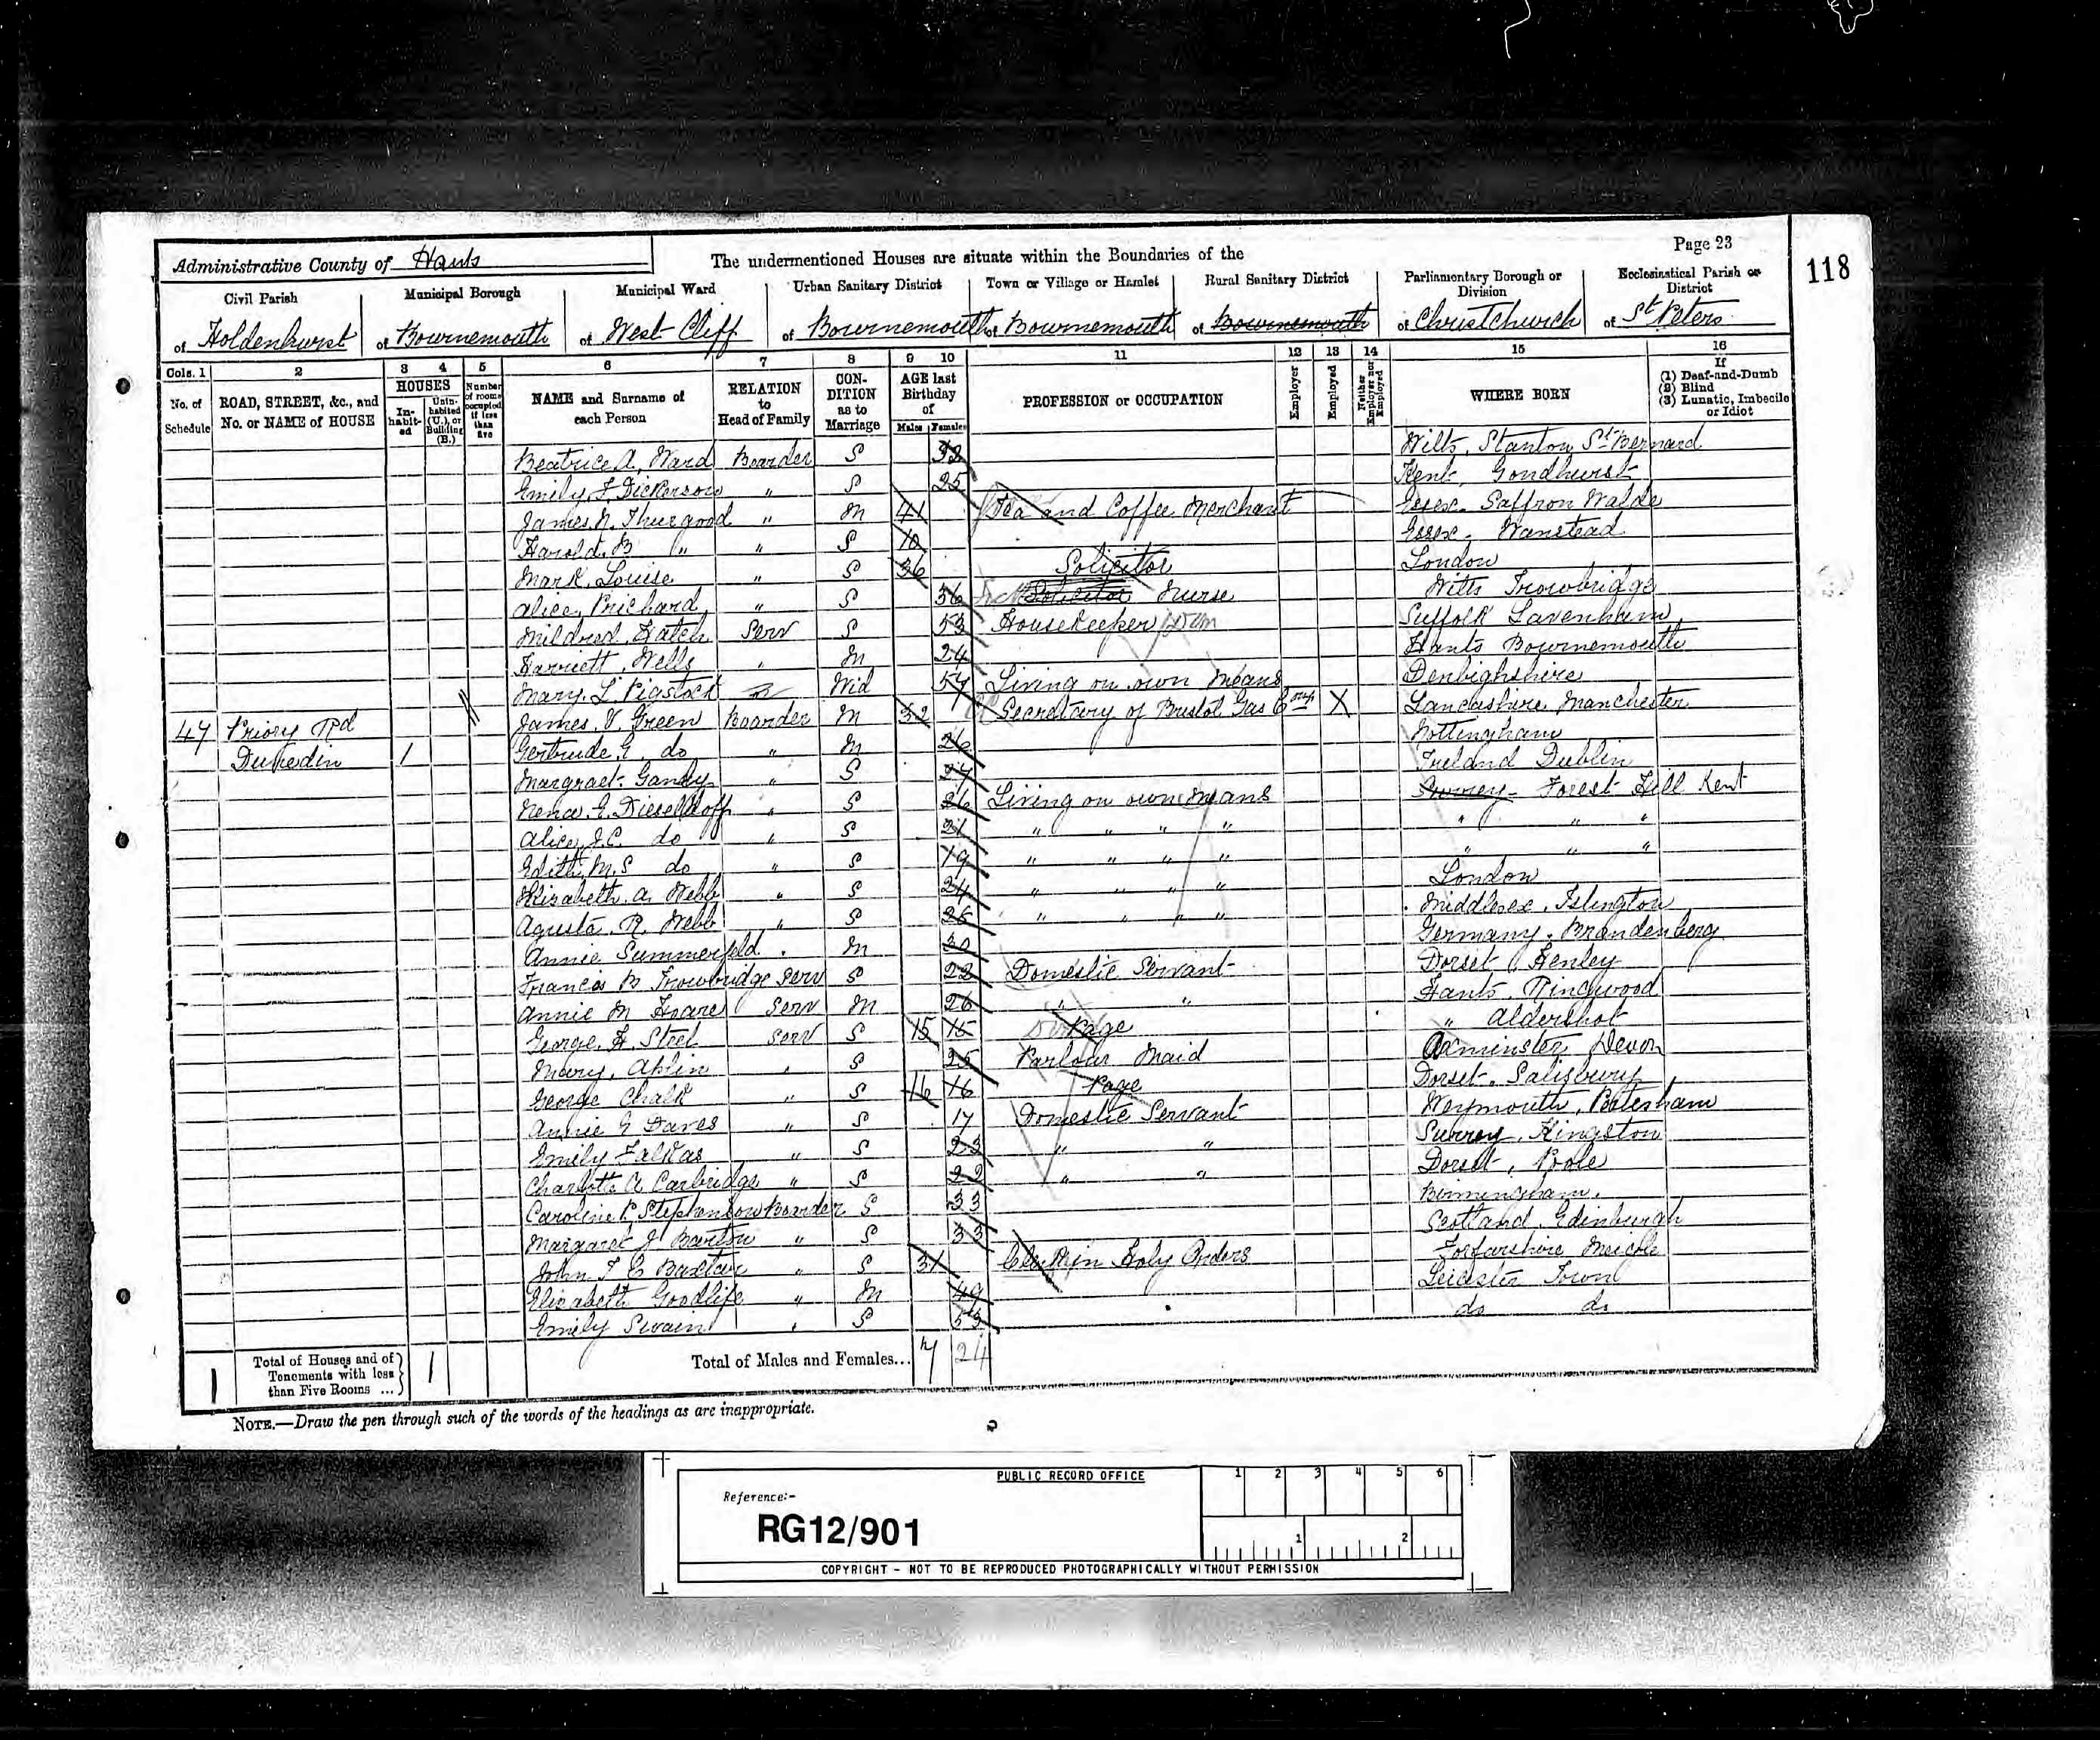 Page 23
118
Administrative County of Hants
The undermentioned Houses are situate within the Boundaries of the
Civil Parish of Holdenhurst
Municipal Borough of Bournemouth
Municipal Ward of West Cliff
Urban Sanitary District of Bournemouth
Town or Village or Hamlet of Bournemouth
Rural Sanitary District of Bournemouth
Parliamentary Borough or Division of Christchurch
Ecclesiastical Parish or District of St Peters
Cols. 1 2 3 4 5 6 7 8 9 10 11 12 13 14 15 16
No. of Schedule
ROAD, STREET, &c., and No. or NAME of HOUSE
HOUSES
Inhabited
Uninhabited (U.), or Building (B.)
Number of rooms occupied if less than five
NAME and Surname of each Person
RELATION to Head of Family
CONDITION as to Marriage
AGE last Birthday of
Males Females
PROFESSION or OCCUPATION
Employer
Employed
Neither Employer nor Employed
WHERE BORN
If
(1) Deaf-and-Dumb
(2) Blind
(3) Lunatic, Imbecile or Idiot
Beatrice A. Ward Boarder S 32 Wilts, Stanton St Bernard
Emily F. Dickerson " S 25 Kent, Goudhurst
James N. Thurgood " M 41 Tea and Coffee Merchant Essex Saffron Walde
Harold. B " " S 10 Essex, Wanstead
Mark. Louise " S 36 Solicitor London
Alice, Prichard " S 36 Solicitor Nurse Wilts Trowbridge
Mildred. Hatch Serv S 53 Housekeeper Suffolk Lavenham
Harriett. Wells " M 24 Hants Bournemouth
Mary. L. Wid 57 Living on own Means Denbighshire
47 Priory Rd James. V. Green Boarder M 32 Secretary of Bristol Gas Comp X Lancashire Manchester
Dunedin 1 Gertrude. E. do " M 26 Nottingham
Margraet. Gandy " S 27 Ireland Dublin
S 26 Living on own Means Surrey Forest Hill Kent
Alice. J.C. do " S 21 " " " " " " "
Edith. M. S do " S 19 " " " " " " "
Elisabeth. A. Webb " S 24 " " " " London
Agusta. R. Webb " S 26 " " " " Middlesex, Islington
Annie Summerfeld . M 30 Germany. Brandenberg
Frances B Trowbridge Serv S 22 Domestic Servant Dorset Henley
Annie M Hoare Serv M 26 " " Hants, Ringwood
George. H. Serv S 15 15 Page " Aldershot
Mary. Aplin " S 25 Parlour Maid Axminster Devon
George Chalk " S 16 16 Page Dorset. Salisbury
Annie E Daves " S 17 Domestic Servant Weymouth,
Emily " S 23 " " Surrey. Kingston
Charlotte A " S 22 " " Dorset, Poole
Caroline Stephenson Boarder S 33 Birmingham.
Margaret J Barton " S 33 Scotland. Edinburgh
John F E Baxter " S 31 Clerk in Holy Orders Forfarshire
Elizabeth Goodlife " M 49 Leicester Town
Emily Swain " S 53 do do
1 Total of Houses and of Tenements with less than Five Rooms ... 1
Total of Males and Females... 7 24
NOTE.—Draw the pen through such of the words of the headings as are inappropriate.
PUBLIC RECORD OFFICE
1 2 3 4 5 6
Reference:-
RG12/901
1 2
COPYRIGHT - NOT TO BE REPRODUCED PHOTOGRAPHICALLY WITHOUT PERMISSION